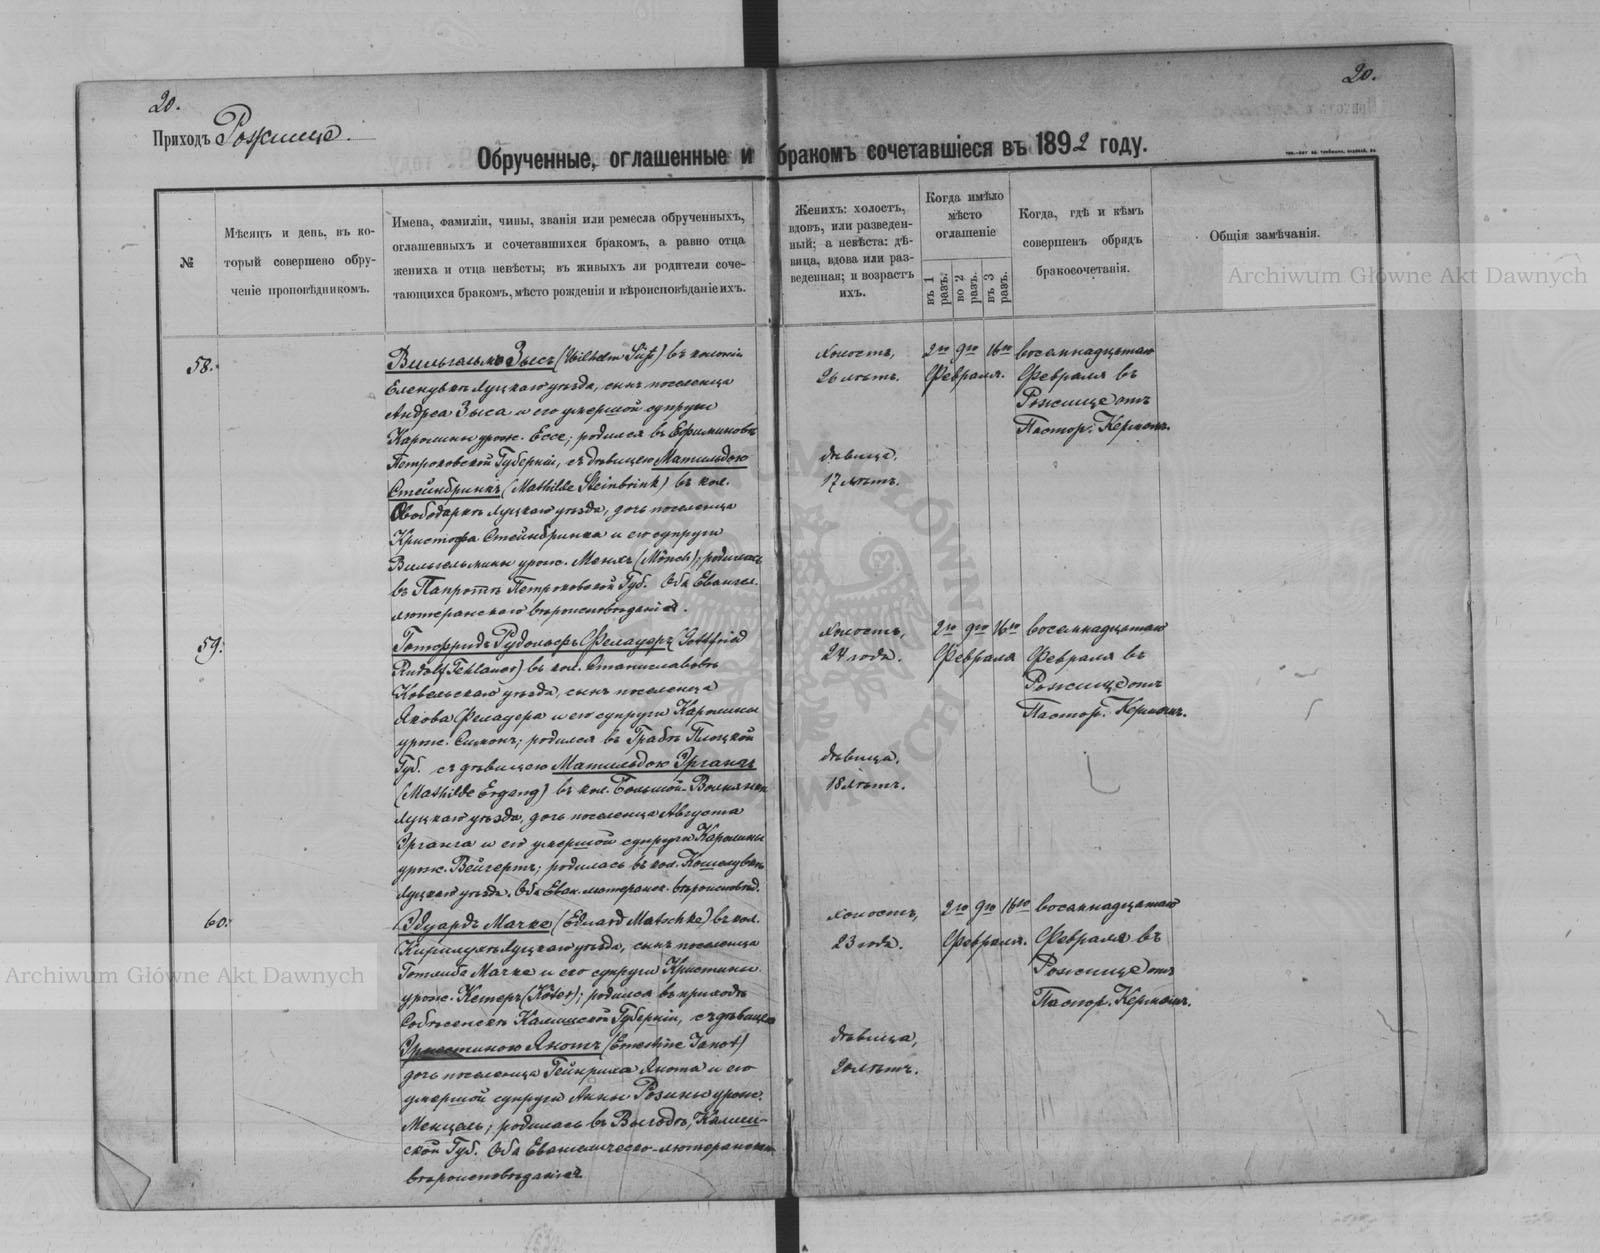 20.
20.
Приходъ Рожище
Обрученные, оглашенные и бракомъ сочетавшіеся въ 1892 году.
№
Мѣсяцъ и день, въ ко-
торый совершено обру-
ченіе проповѣдникомъ.
Имена, фамиліи, чины, званія или ремесла обрученныхъ,
оглашенныхъ и сочетавшихся бракомъ, а равно отца
жениха и отца невѣсты; въ живыхъ ли родители соче-
тающихся бракомъ, мѣсто рожденія и вѣроисповѣданіе ихъ.
Женихъ: холостъ,
вдовъ, или разведен-
ный; а невѣста: дѣ-
вица, вдова или раз-
веденная; и возрастъ
ихъ.
Когда имѣло
мѣсто
оглашеніе
въ 1 разъ.
во 2 разъ.
въ 3 разъ.
Когда, гдѣ и кѣмъ
совершенъ обрядъ
бракосочетанія.
Общія замѣчанія.
Archiwum Główne Akt Dawnych
58.
Вильгельмъ Зысъ (Wilhelm Süß) въ колоніи
Луцкаго уѣзда, сынъ поселенца
Андреа Зыса и его умершой супруги
Каролины урож. Ессе; родился въ
Петроковской Губерніи, съ дѣвицею Матильдою
Стейнбринкъ (Mathilde Steinbrink) въ кол.
Луцкаго уѣзда, дочь поселенца
Кристофа Стейнбринка и его супруги
Вильгельмины урож. Менхъ (Mönch); родилась
въ Папротѣ Петроковской Губ. Оба Евангел.
лютеранскаго вѣроисповѣданія.
холостъ,
26 лѣтъ.
дѣвица.
17 лѣтъ.
2го 9го 16го
Февраля.
восемнадцатаго
Февраля въ
Рожище отъ
Пастор. Керномъ.
59.
Готфридъ Рудольфъ Фелауеръ Gottfried
Rudolf Fehlauer) въ кол. Станиславовъ
Ковельскаго уѣзда, сынъ поселенца
Якова Фелауера и его супруги Каролины
урож. Симонъ; родился въ Грабѣ Плоцкой
Губ. съ дѣвицею Матильдою Эргангъ
(Mathilde Ergang) въ кол. Большой-
Луцкаго уѣзда, дочь поселенца Августа
Эрганга и его умершой супруги Каролины
урож. Вейгертъ; родилась въ кол.
Луцкаго уѣзда. Оба Еван. лютеранск. вѣроисповѣд.
холостъ,
24 года.
дѣвица.
18 лѣтъ.
2го 9го 16го
Февраля
восемнадцатаго
Февраля въ
Рожище отъ
Пастор. Керномъ.
60.
Эдуардъ Мачке (Eduard Matschke) въ кол.
Луцкаго уѣзда, сынъ поселенца
Готлиба Мачке и его супруги Кристины
урож. Кетеръ (Köter); родился въ приходѣ
Калишской Губерніи, съ дѣвицею
Эрнестиною Янотъ (Ernestine Janot)
дочь поселенца Гейнриха Янота и его
умершой супруги Анны Розины урож.
Менцель; родилась въ Выгодѣ, Калиш-
ской Губ. Оба Евангелическо-лютеранскаго
вѣроисповѣданія
холостъ,
23 года.
дѣвица,
20 лѣтъ.
2го 9го 16го
Февраля.
восемнадцатаго
Февраля въ
Рожище отъ
Пастор. Керномъ.
Archiwum Główne Akt Dawnych